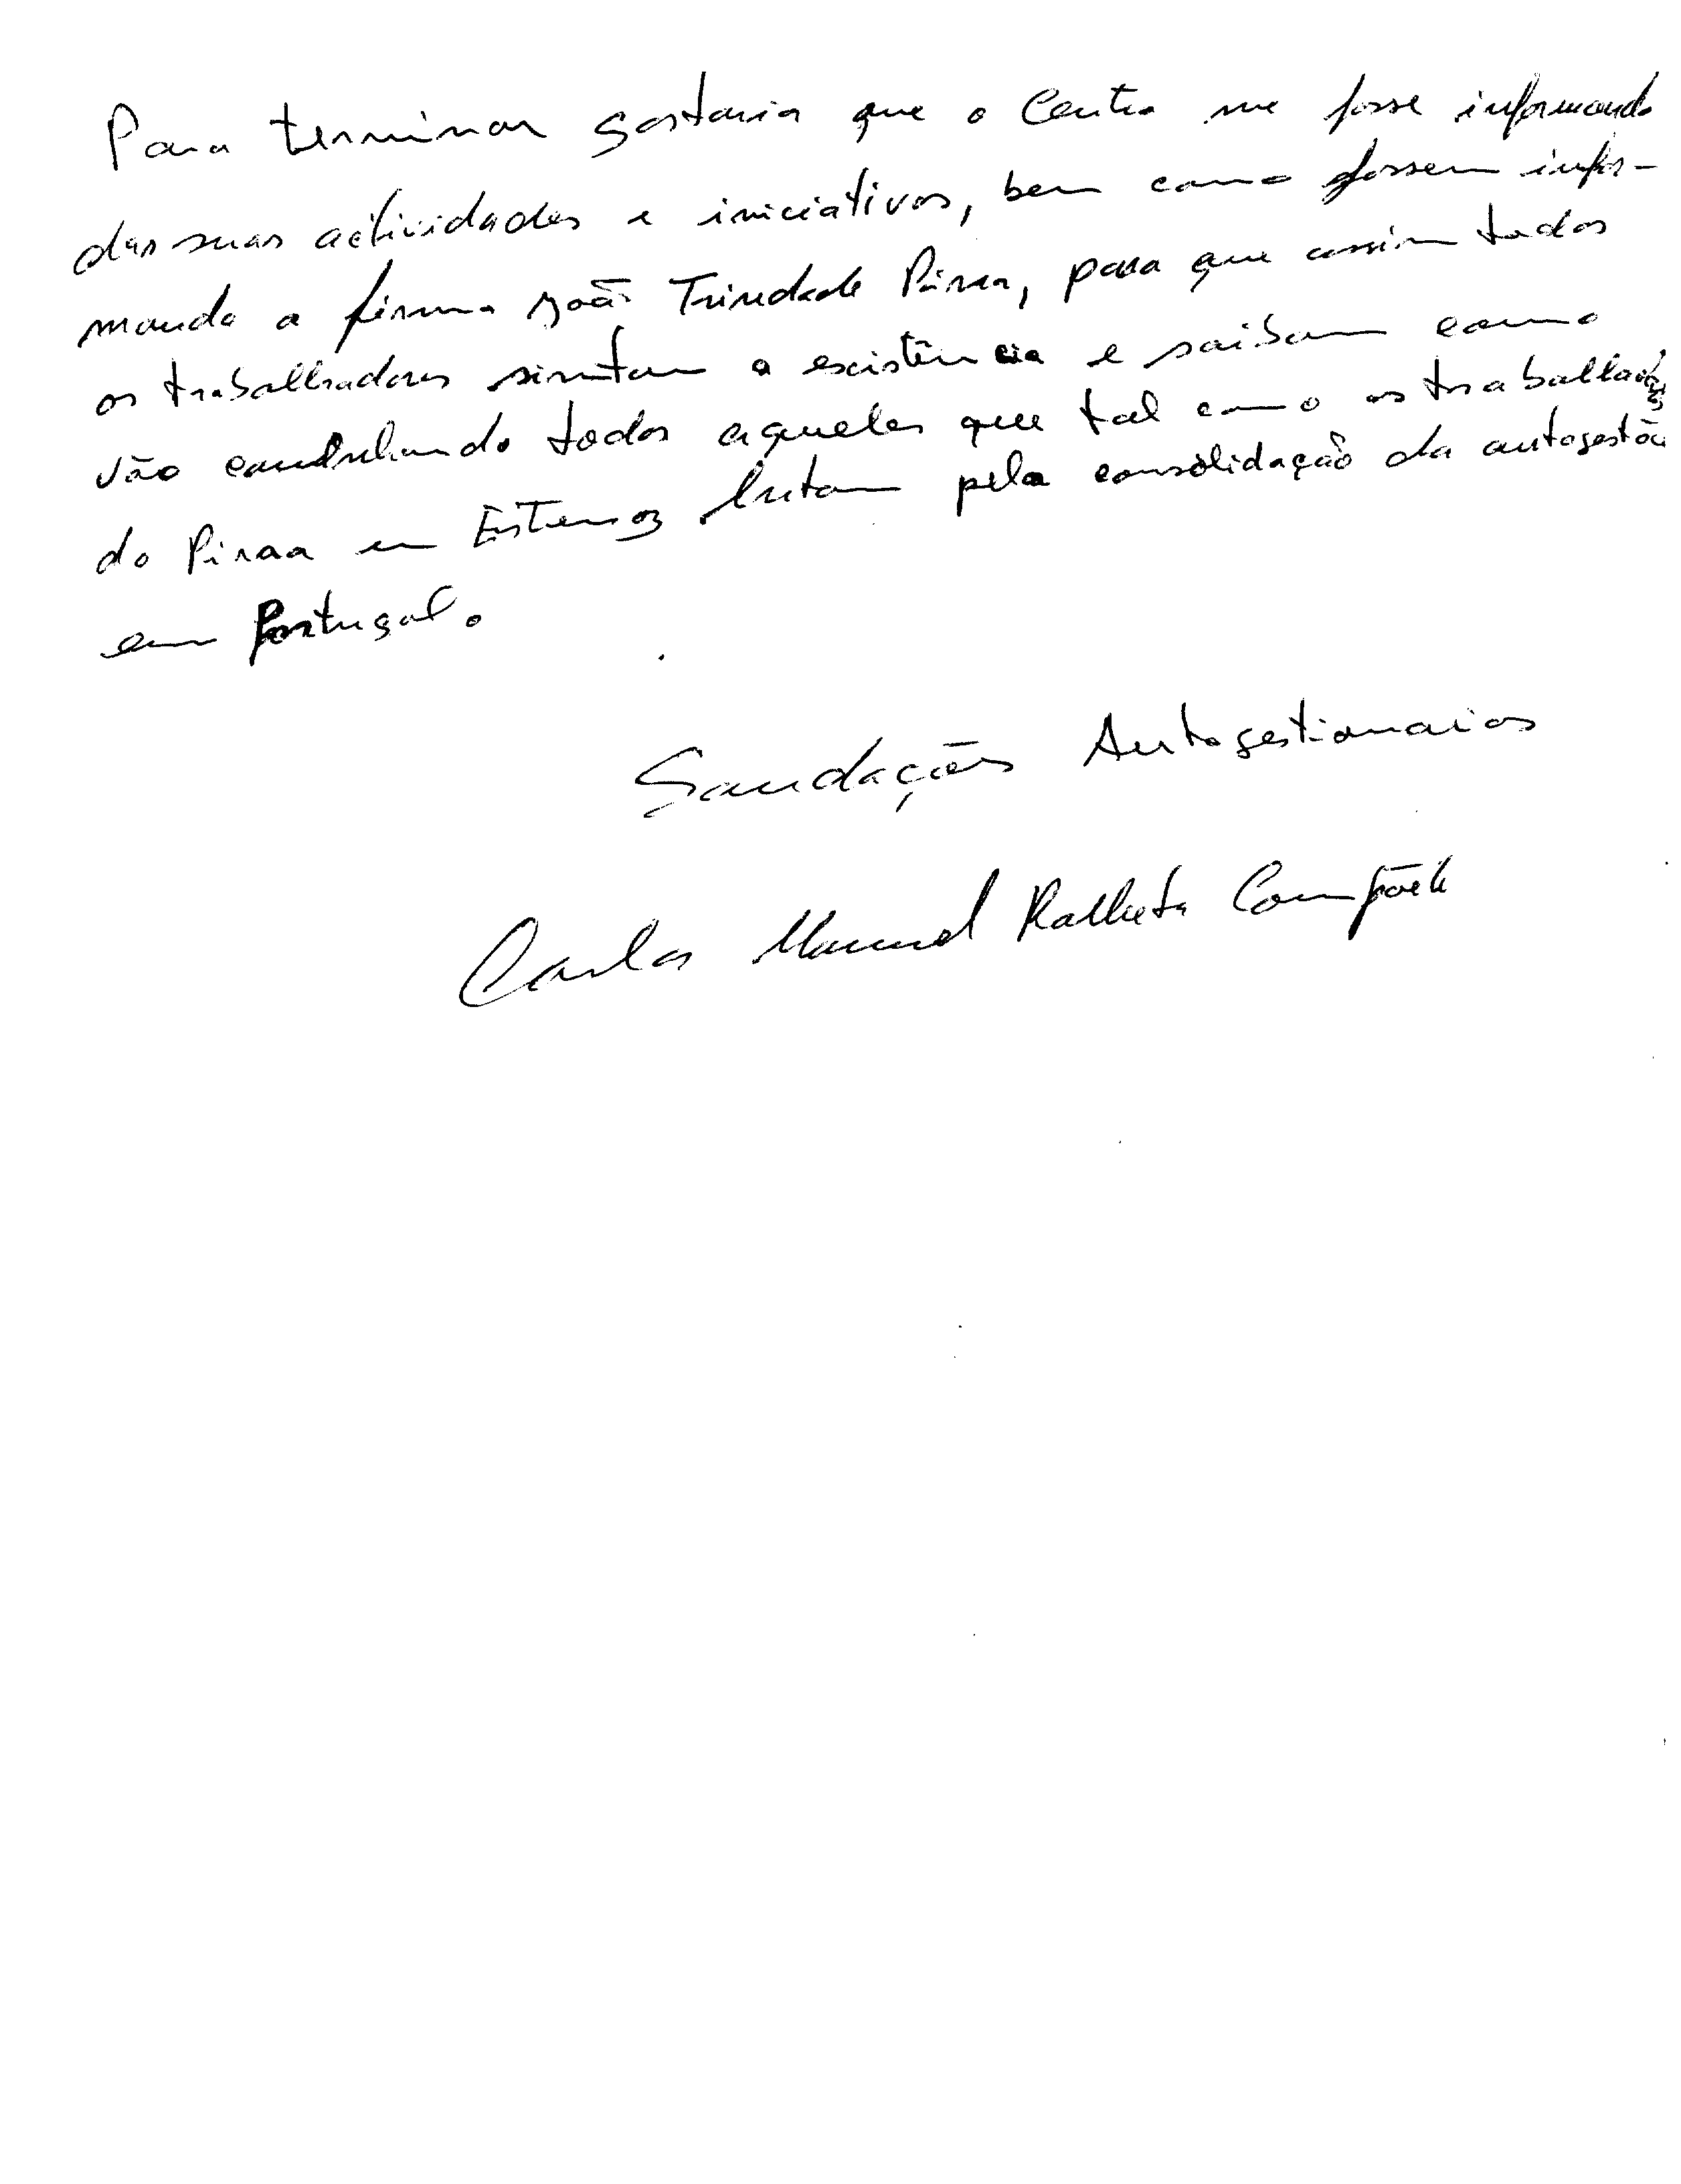 Para terminar gostaria que o Centro me fosse informando
das suas actividades e iniciativas, bem como fossem infor-
mando a firma João Trindade Pirra, para que assim todos
os trabalhadores sintam a existência e saibam como
vão caminhando todos aqueles que tal como os trabalhadores
do Piraa em Estremoz lutam pela consolidação da autogestão
em Portugal.
Saudações Autogestionarias
Carlos Manuel